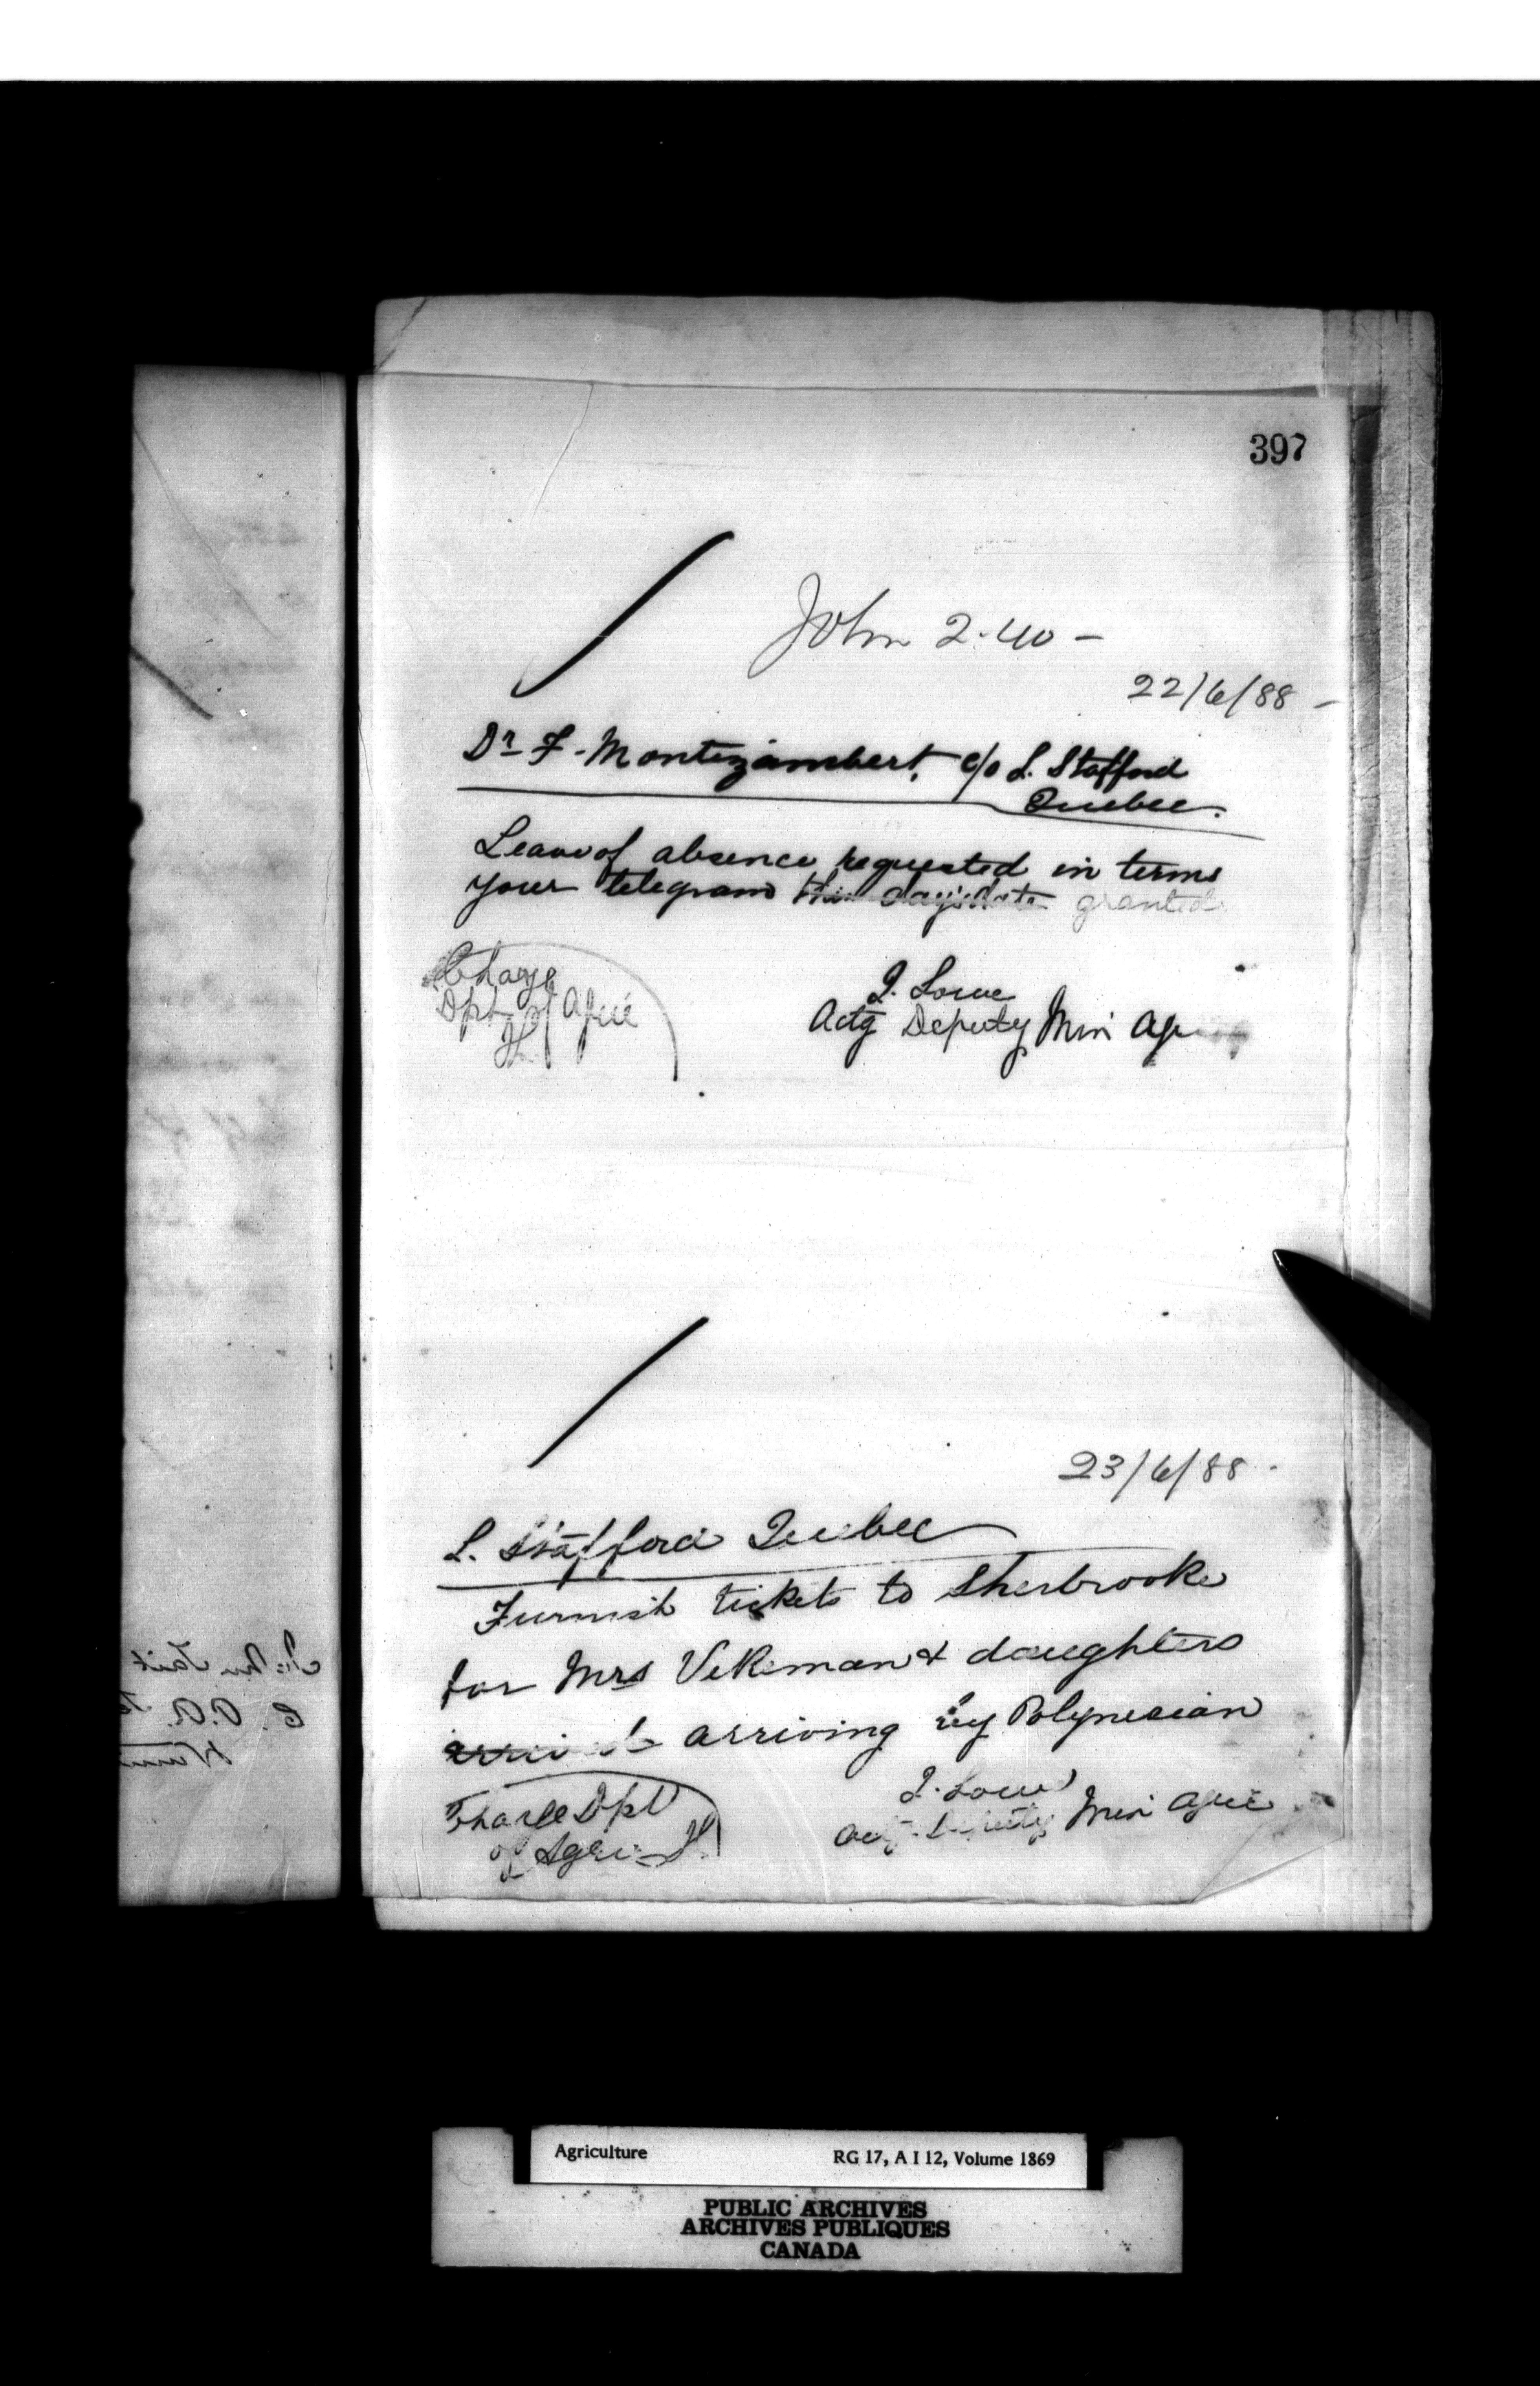 397
John 2.40 -
22/6/88 -
Dr F. Montizambert, c/o L. Stafford
Quebec.
Leave of absence requested in terms
your telegram this day's date granted.
Charge
Dpt of Agric
J. Lowe
Actg Deputy Min Agric
23/6/88 -
L. Stafford Quebec
Furnish tickets to Sherbrooke
for Mrs Vekeman & daughters
arrived arriving by Polynesian
J. Lowe
Actg Deputy Min Agric
Charge Dpt
of Agric
Agriculture RG 17, A I 12, Volume 1869
PUBLIC ARCHIVES
ARCHIVES PUBLIQUES
CANADA